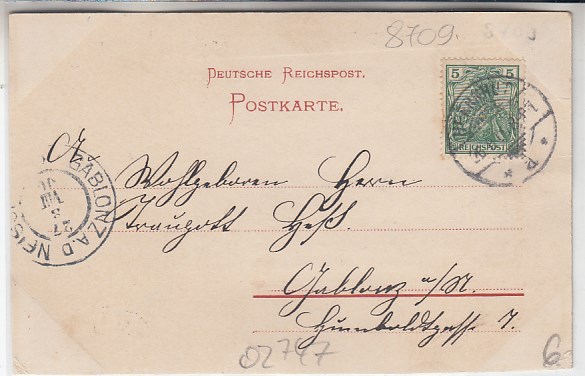 8709.
8709
DEUTSCHE REICHSPOST.
POSTKARTE.
5 5
REICHSPOST
An
Wohlgeboren Herrn
Traugott Heſt.
Gablonz a/N.
Humboldtgasse 7.
GABLONZ A.D. NEISSE
27
3
VII
02747
6.-